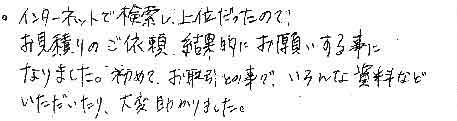 。インターネットで検索し、上位だったので、
お見積りのご依頼、結果的にお願いする事に
なりました。初めてお取引との事で、いろんな資料など
いただいたり、大変助かりました。